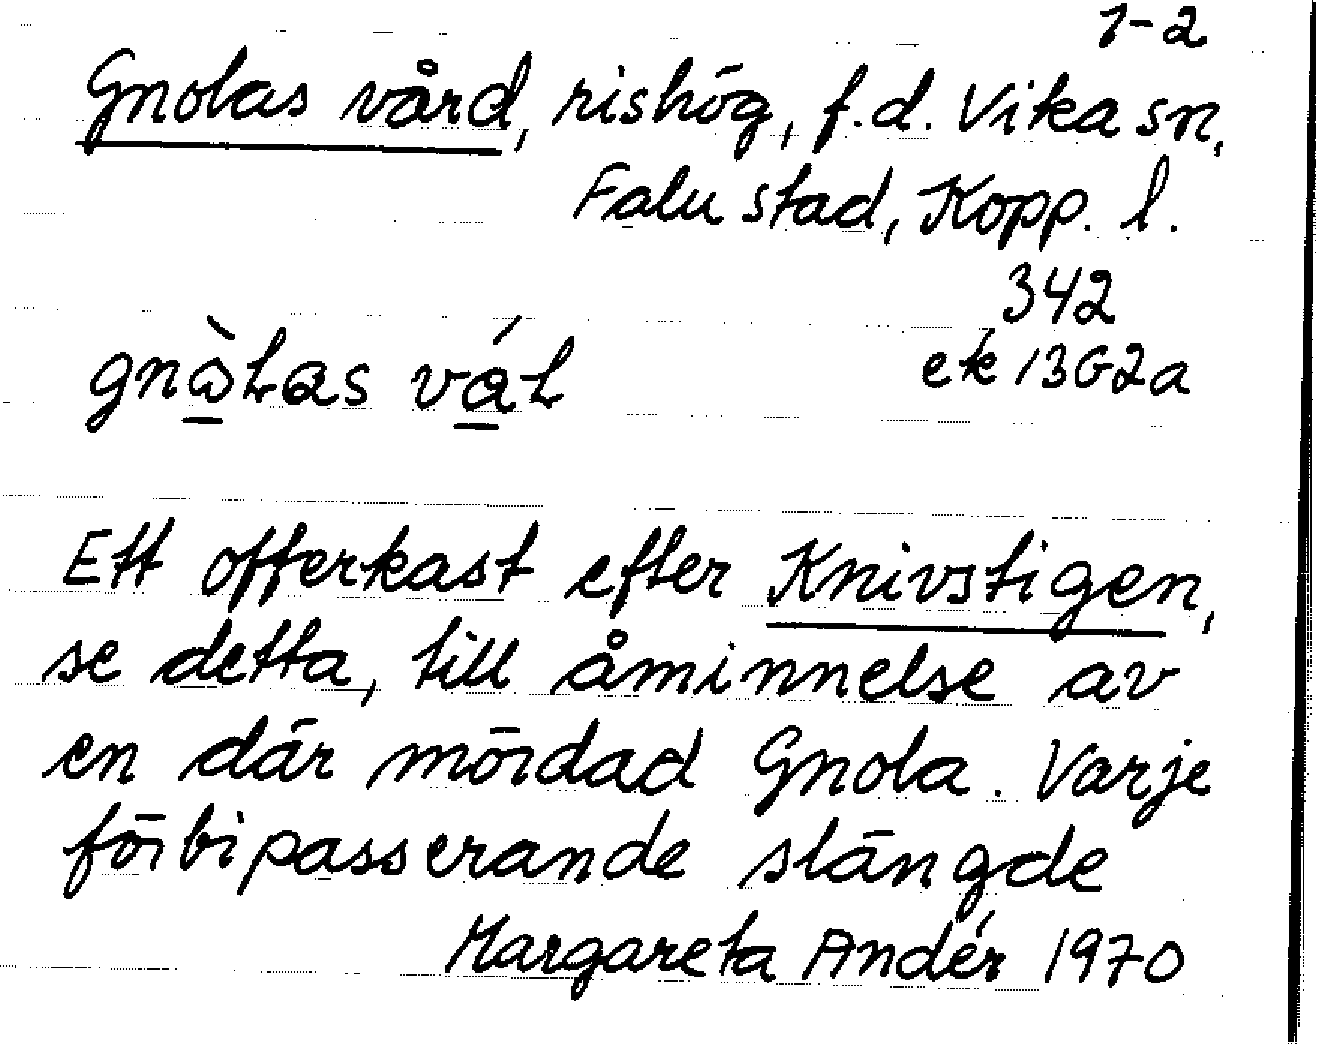 1-2
Gnolas vård, rishög, f.d. Vika sn,
Falu stad, Kopp. l.
342
gnàLas váL
ek 13G2a
Ett offerkast efter Knivstigen,
se detta, till åminnelse av
en där mördad Gnola. Varje
förbipasserande slängde
Margareta Andér 1970